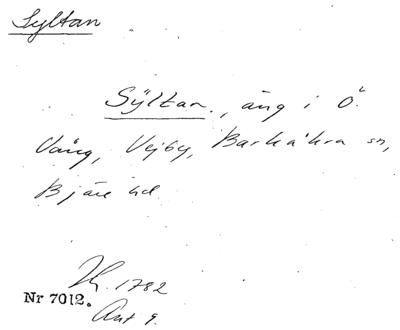 Syltan
Sÿltan., äng i Ö.
Vång, Vejby, Barkåkra sn,
Bjäre hd
1782
Nr 7012.
Akt 9.